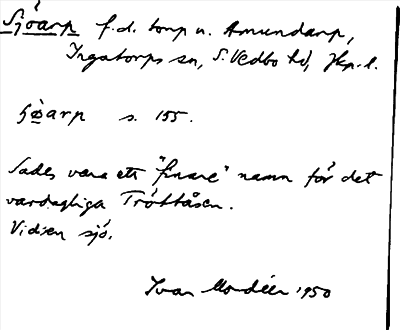 Sjöarp f.d. torp u. Amundarp,
Ingatorps sn, S. Vedbo hd, Jkp. l.
sjöarp s. 155.
Sades vara ett "finare" namn för det
vardagliga Tröttåsen.
Vid en sjö.
Ivar Modéer 1950